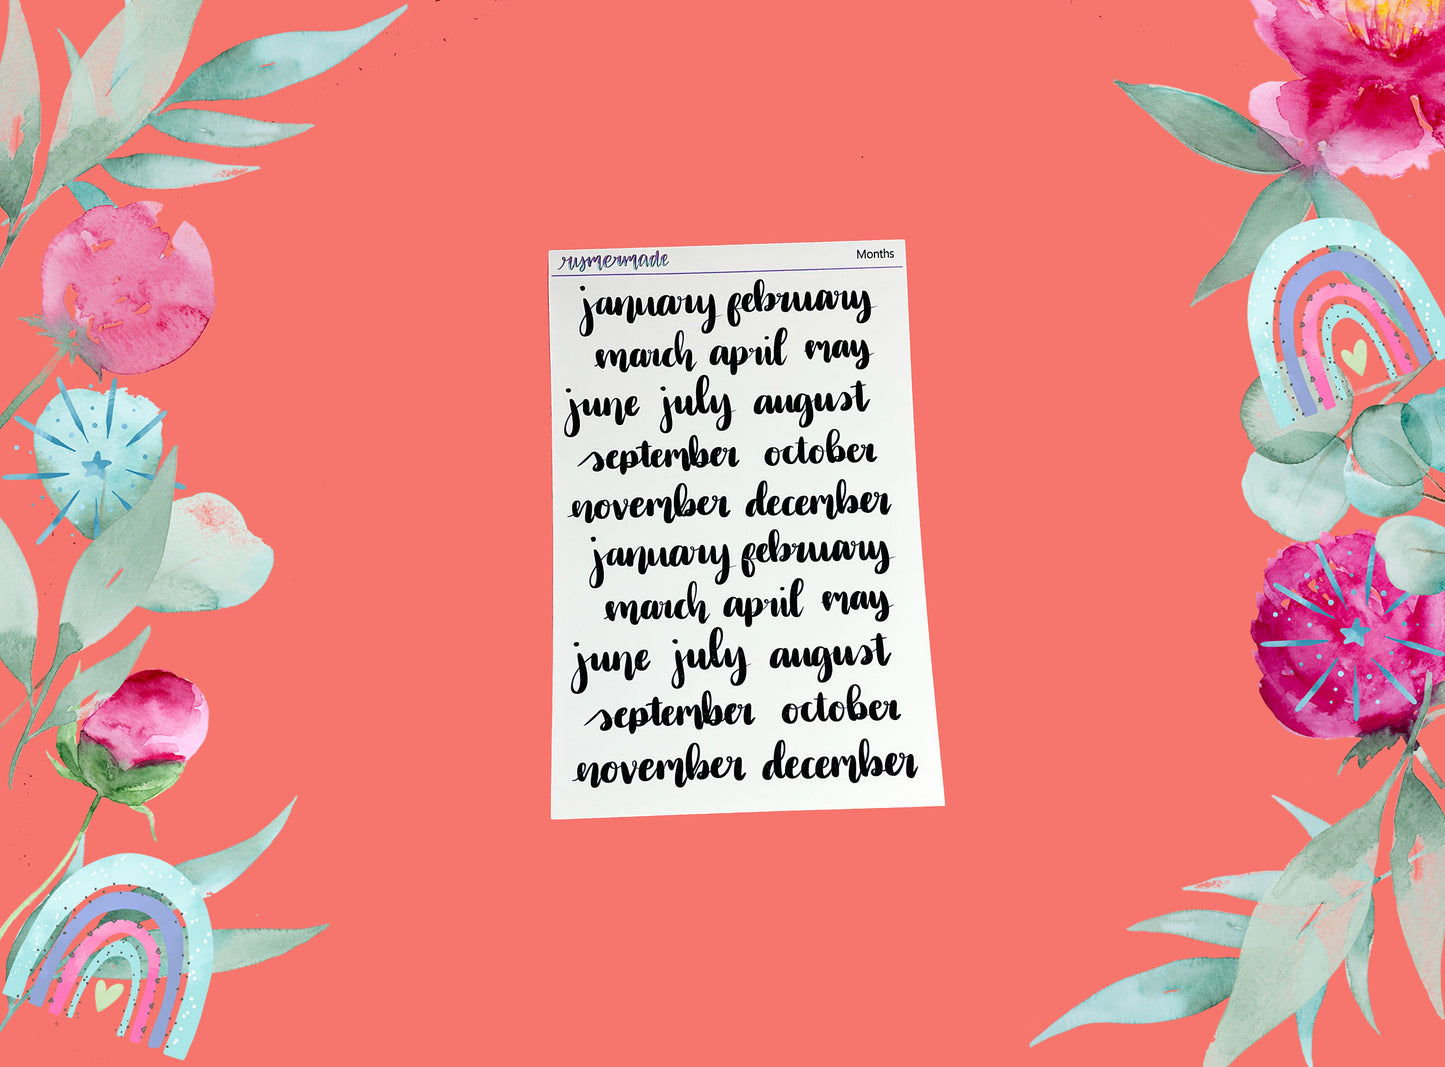 rymermade Months
january february
march april may
june july august
september october
november december
january february
march april may
june july august
september october
november december